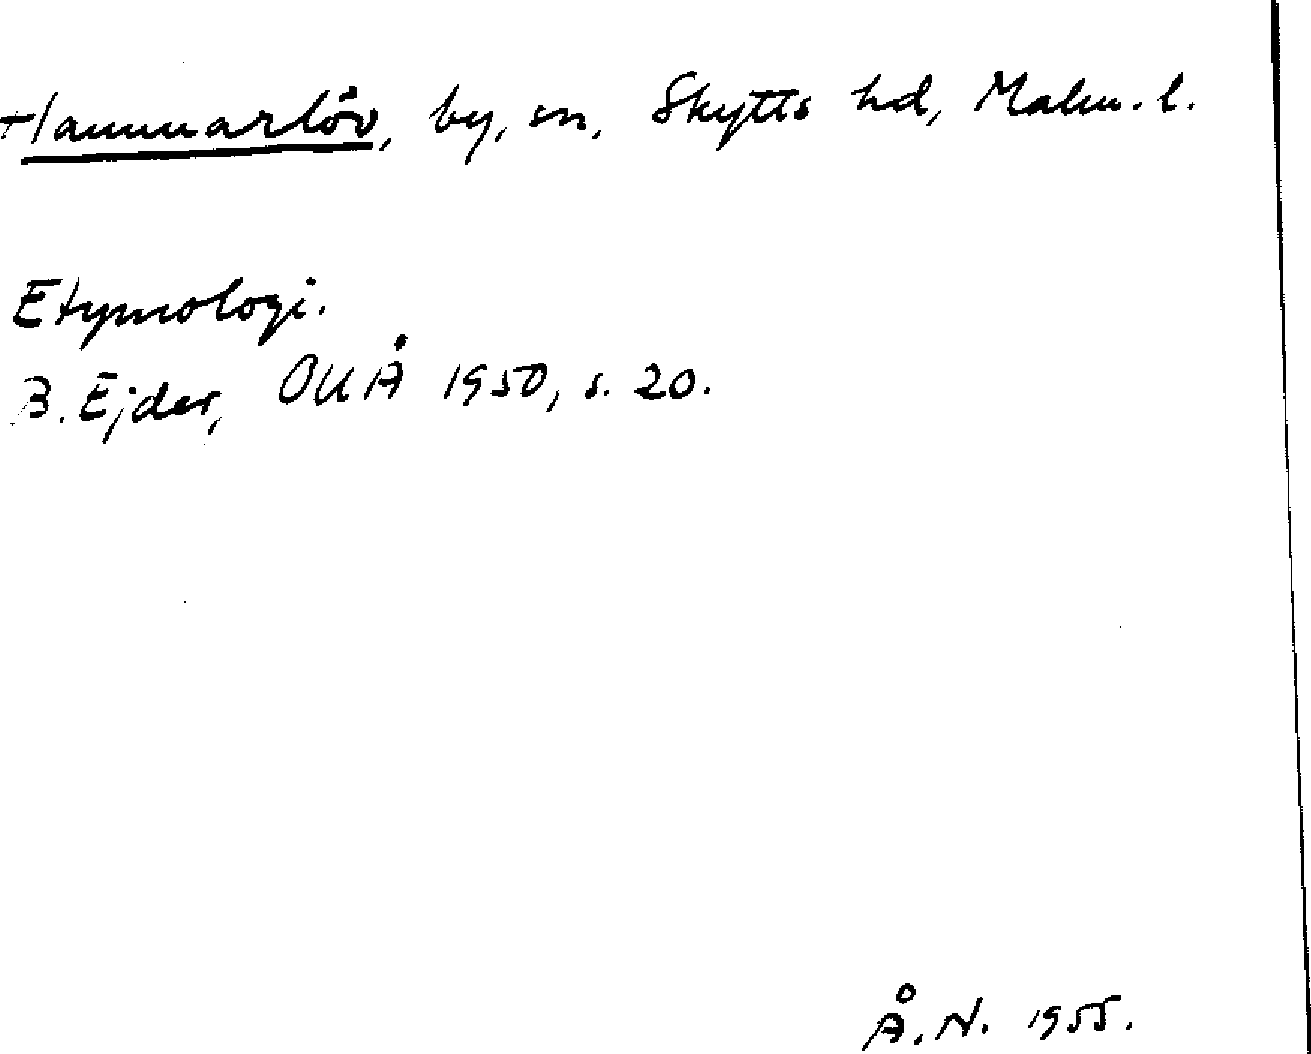 Hammarlöv, by, sn, Skytts hd, Malm. l.
Etymologi.
B. Ejder, OUÅ 1950, s. 20.
Å. N. 1955.